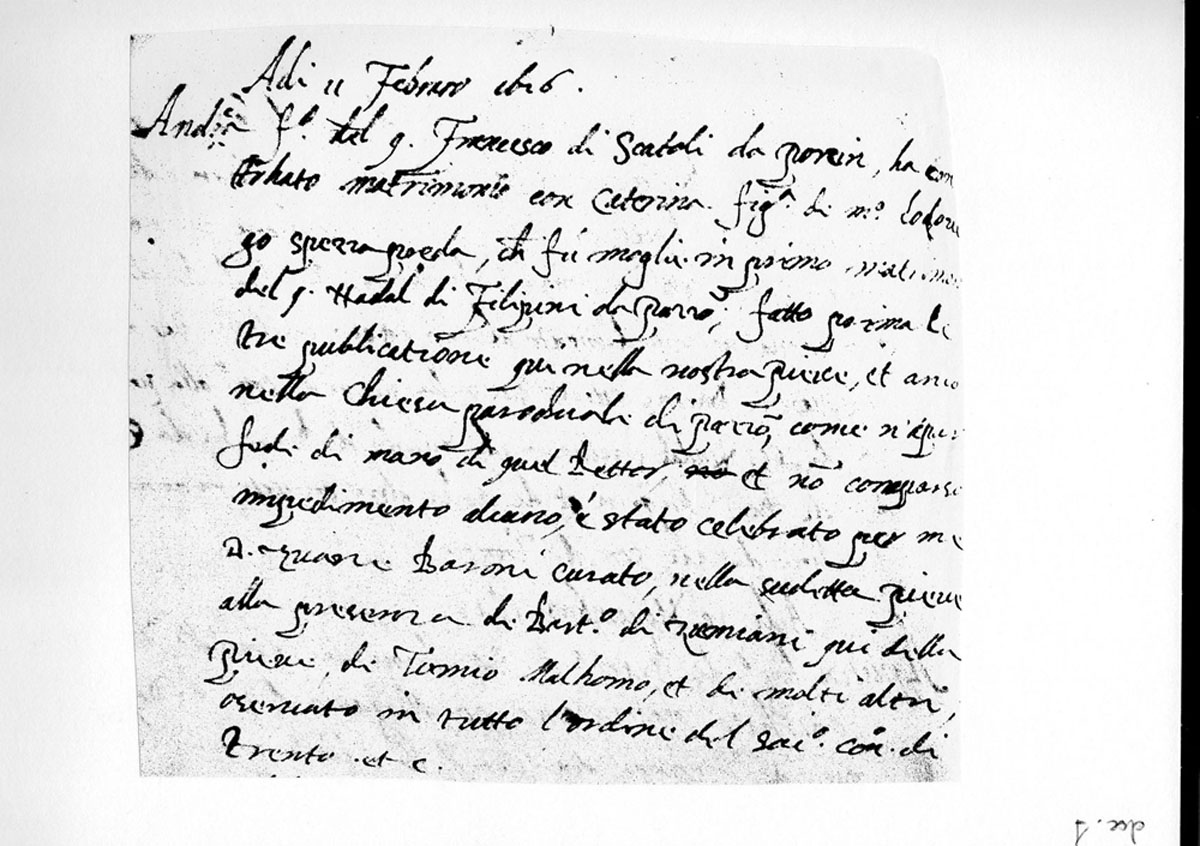 Adi 11 Febraro 1626.
And.ª f.º del q. Francesco di Scatoli da porcin, ha con
trhato matrimonio con Caterina fig.ª di m.º lodovi
go spezzapreda, ch fú moglie in primo matrimo
del q. Nadal di Filipini da pazzõ; fatto prima le
tre publicatione qui nella nostra pieve, et anco
nella Chiesa parochiale di pazzõ, come n'apar
fede di mano di quel Rettor, no et nõ comparso
impedimento alcuno, é stato celebrato per me
Baroni curato, nella sudetta pieve
alla presenza di Bart.º di qui della
pieve, di Tomio Malhomo, et di molti altri,
oservato in tutto l'ordine del sac.º con. di
Trento et c.
doc. 1